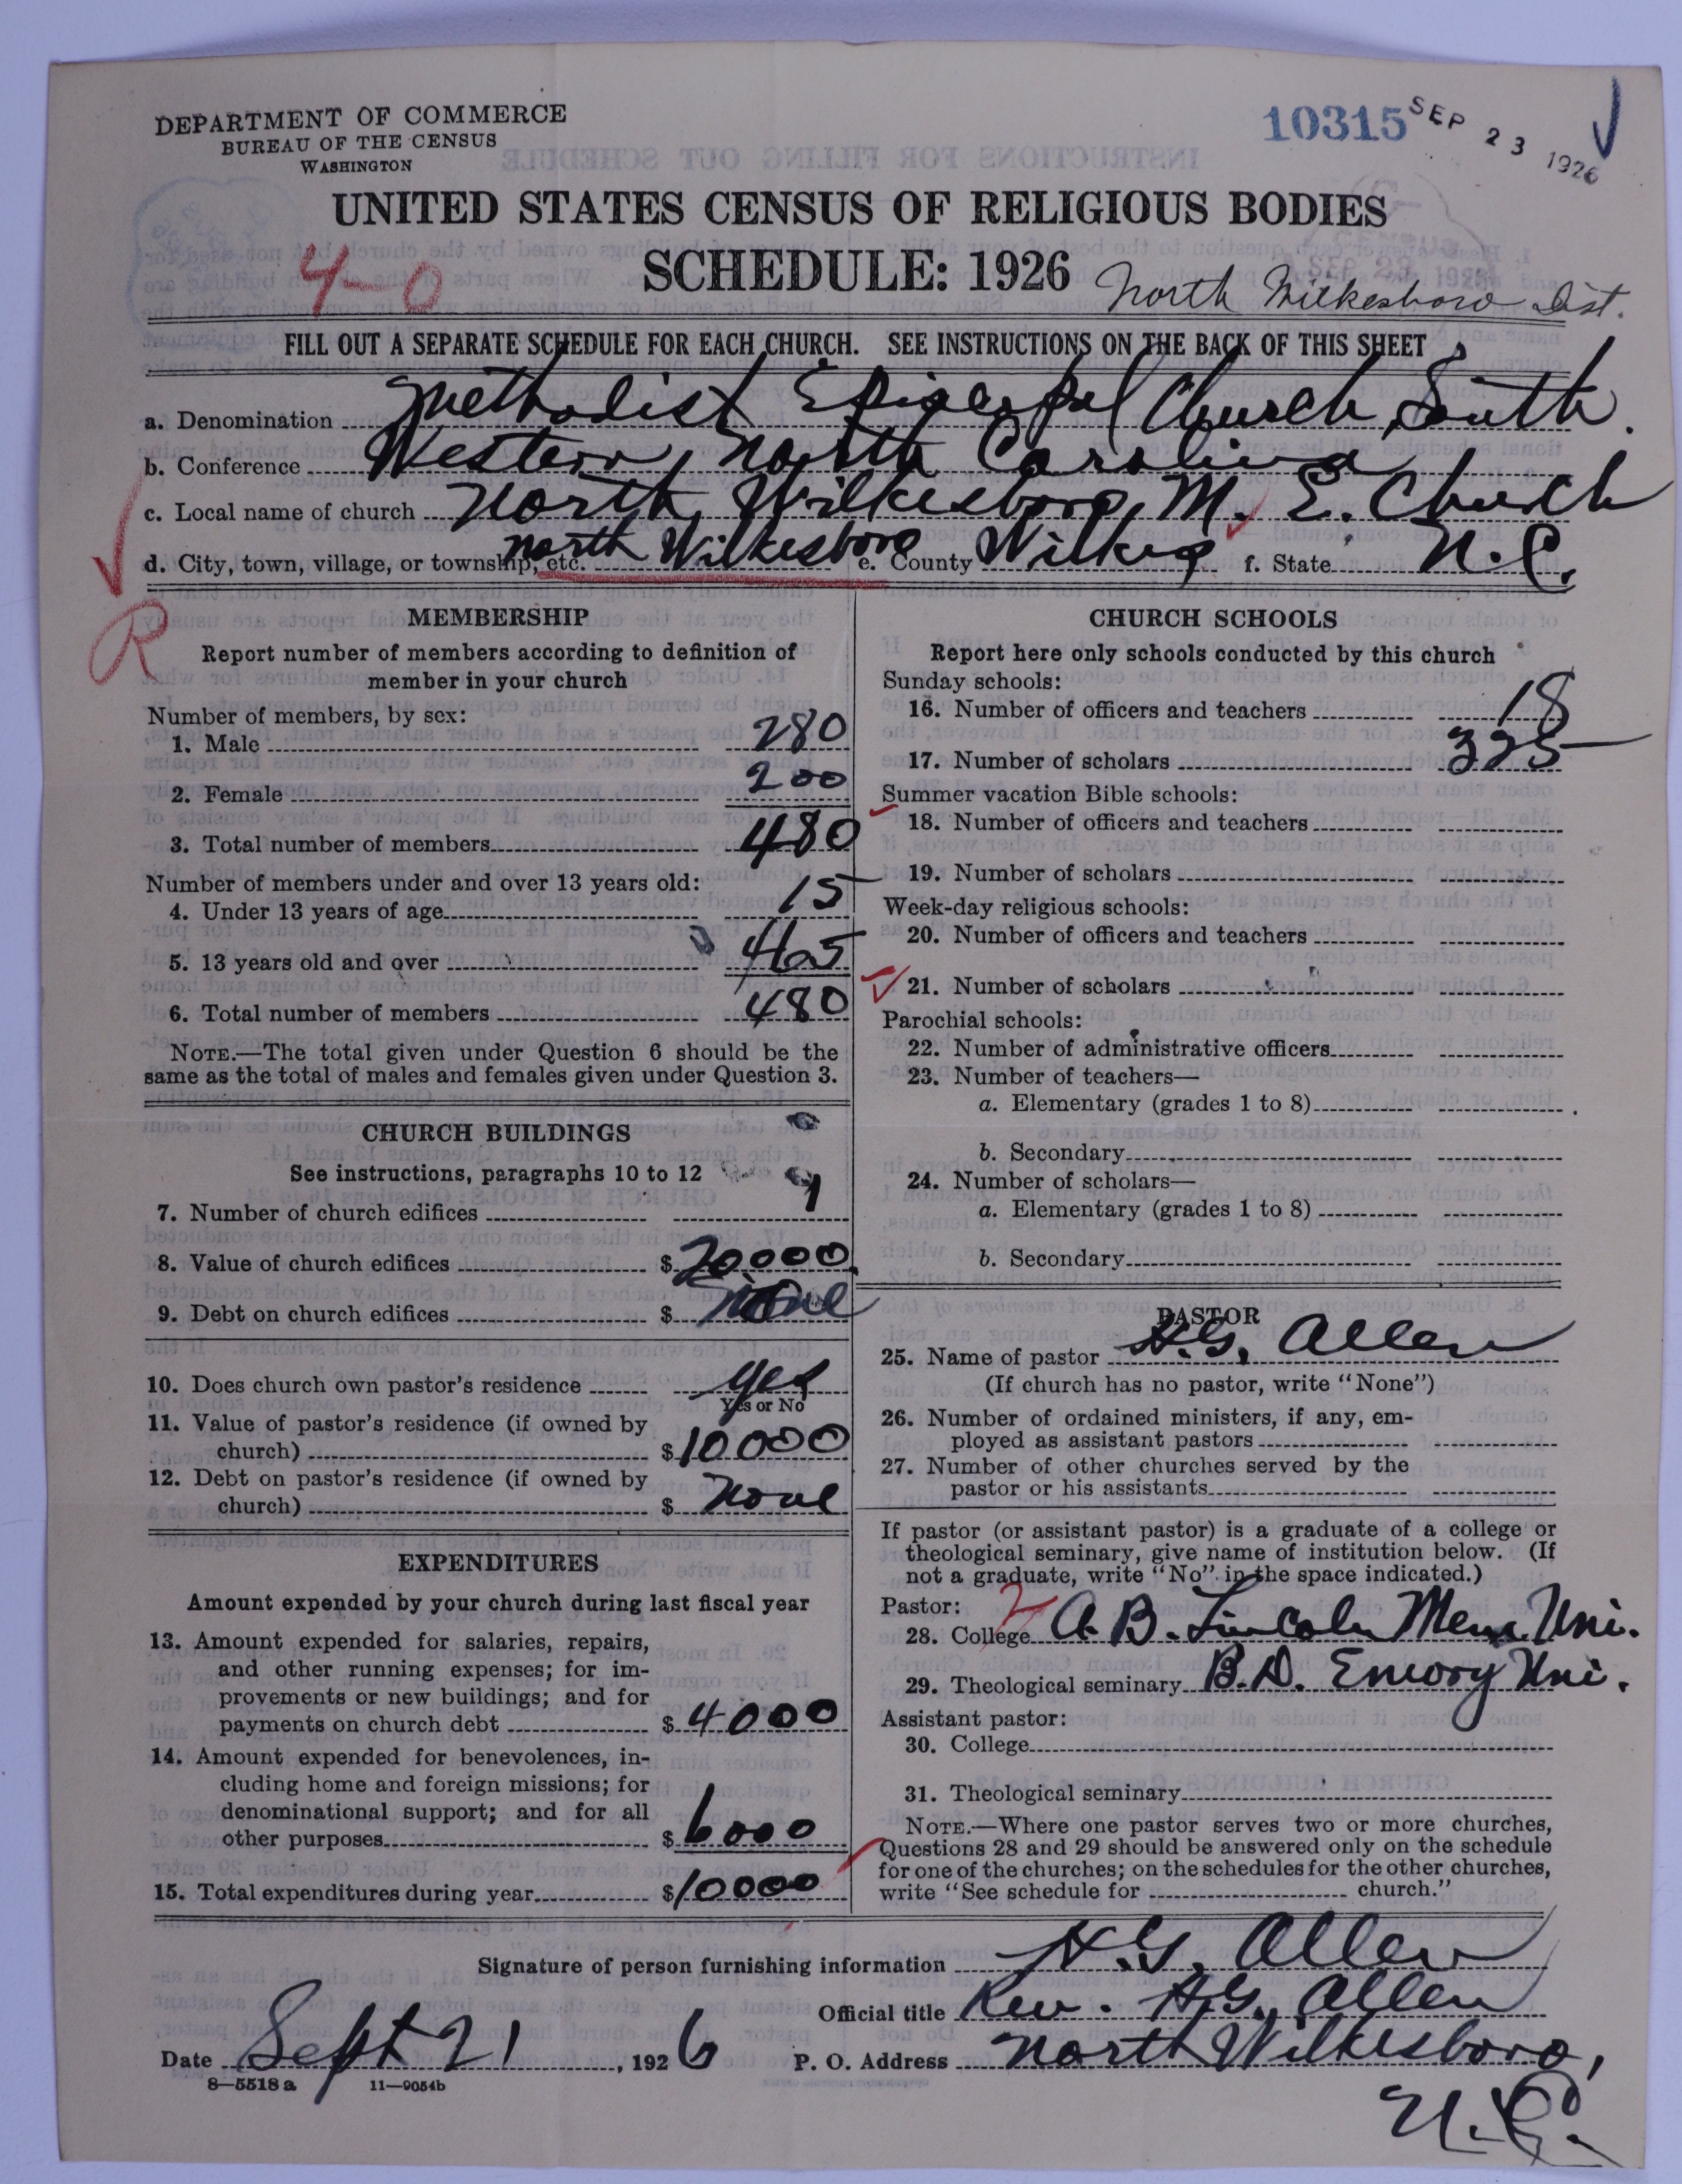 DEPARTMENT OF COMMERCE
BUREAU OF THE CENSUS
WASHINGTON
10315
SEP 23 1926
UNITED STATES CENSUS OF RELIGIOUS BODIES
4-0
SCHEDULE: 1926
North Wilkesboro Dist.
FILL OUT A SEPARATE SCHEDULE FOR EACH CHURCH. SEE INSTRUCTIONS ON THE BACK OF THIS SHEET
a. Denomination Methodist Episcopal Church, South.
b. Conference Western North Carolina
c. Local name of church North Wilkesboro, M. E. Church
d. City, town, village, or township, etc. North Wilkesboro e. County Wilkes f. State N.C.
R
MEMBERSHIP
Report number of members according to definition of
member in your church
Number of members, by sex:
1. Male 280
2. Female 200
3. Total number of members 480
Number of members under and over 13 years old:
4. Under 13 years of age 15
5. 13 years old and over 465
6. Total number of members 480
NOTE.—The total given under Question 6 should be the
same as the total of males and females given under Question 3.
CHURCH BUILDINGS
See instructions, paragraphs 10 to 12
7. Number of church edifices 1
8. Value of church edifices $20000
9. Debt on church edifices $ None
10. Does church own pastor's residence Yes
Yes or No
11. Value of pastor's residence (if owned by
church) $10000
12. Debt on pastor's residence (if owned by
church) $ None
EXPENDITURES
Amount expended by your church during last fiscal year
13. Amount expended for salaries, repairs,
and other running expenses; for im-
provements or new buildings; and for
payments on church debt $4000
14. Amount expended for benevolences, in-
cluding home and foreign missions; for
denominational support; and for all
other purposes $6000
15. Total expenditures during year $10000
CHURCH SCHOOLS
Report here only schools conducted by this church
Sunday schools:
16. Number of officers and teachers 18
17. Number of scholars 325
Summer vacation Bible schools:
18. Number of officers and teachers
19. Number of scholars
Week-day religious schools:
20. Number of officers and teachers
21. Number of scholars
Parochial schools:
22. Number of administrative officers
23. Number of teachers—
a. Elementary (grades 1 to 8)
b. Secondary
24. Number of scholars—
a. Elementary (grades 1 to 8)
b. Secondary
PASTOR
25. Name of pastor H.G. Allen
(If church has no pastor, write "None")
26. Number of ordained ministers, if any, em-
ployed as assistant pastors
27. Number of other churches served by the
pastor or his assistants
If pastor (or assistant pastor) is a graduate of a college or
theological seminary, give name of institution below. (If
not a graduate, write "No" in the space indicated.)
Pastor:
28. College A.B. Lincoln Mem. Uni.
29. Theological seminary B.D. Emory Uni.
Assistant pastor:
30. College
31. Theological seminary
NOTE.—Where one pastor serves two or more churches,
Questions 28 and 29 should be answered only on the schedule
for one of the churches; on the schedules for the other churches,
write "See schedule for church."
Signature of person furnishing information H.G. Allen
Official title Rev. H.G. Allen
Date Sept 21, 1926 P. O. Address North Wilkesboro,
N.C.
8—5518 a 11—9054b